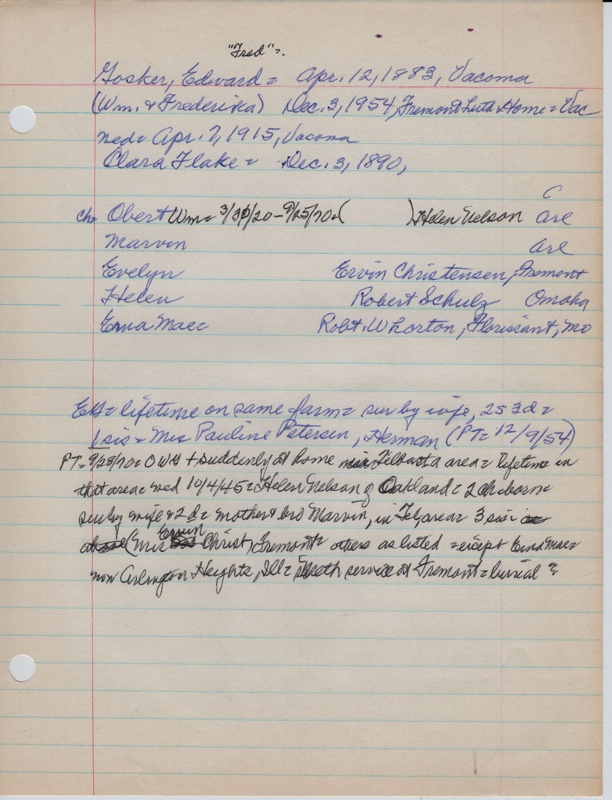 "Fred"=
Gosker, Edward = Apr. 12, 1883, Vacoma
(Wm. & Frederika) Dec. 3, 1954, Fremont Luth Home = Vac
med = Apr. 7, 1915, Vacoma
Clara Flake = Dec. 3, 1890,
C
ch. Obert Wm = 3/30/20 - 9/25/70 = ( ) Helen Nelson are
Marvin are
Evelyn Ervin Christensen, Fremont
Helen Robert Schulz Omaha
Erna Maec Robt. Whorton, Florissant, Mo
= lifetime on same farm = sur by wife, 2s 3d =
1 sis = Mrs Pauline Petersen, Herman (PT = 12/9/54)
PT = 9/28/70 = OWH + suddenly at home area = lifetime in
that area = med 10/4/45 = Helen Nelson of Oakland = 2 ch born =
sur by wife & 2d = mother & bro Marvin, in area = 3 sis =
(Mrs Ervin Christ, Fremont = others as listed = except Erna Mae =
now Arlington Heights, Ill = service at Fremont = burial ?